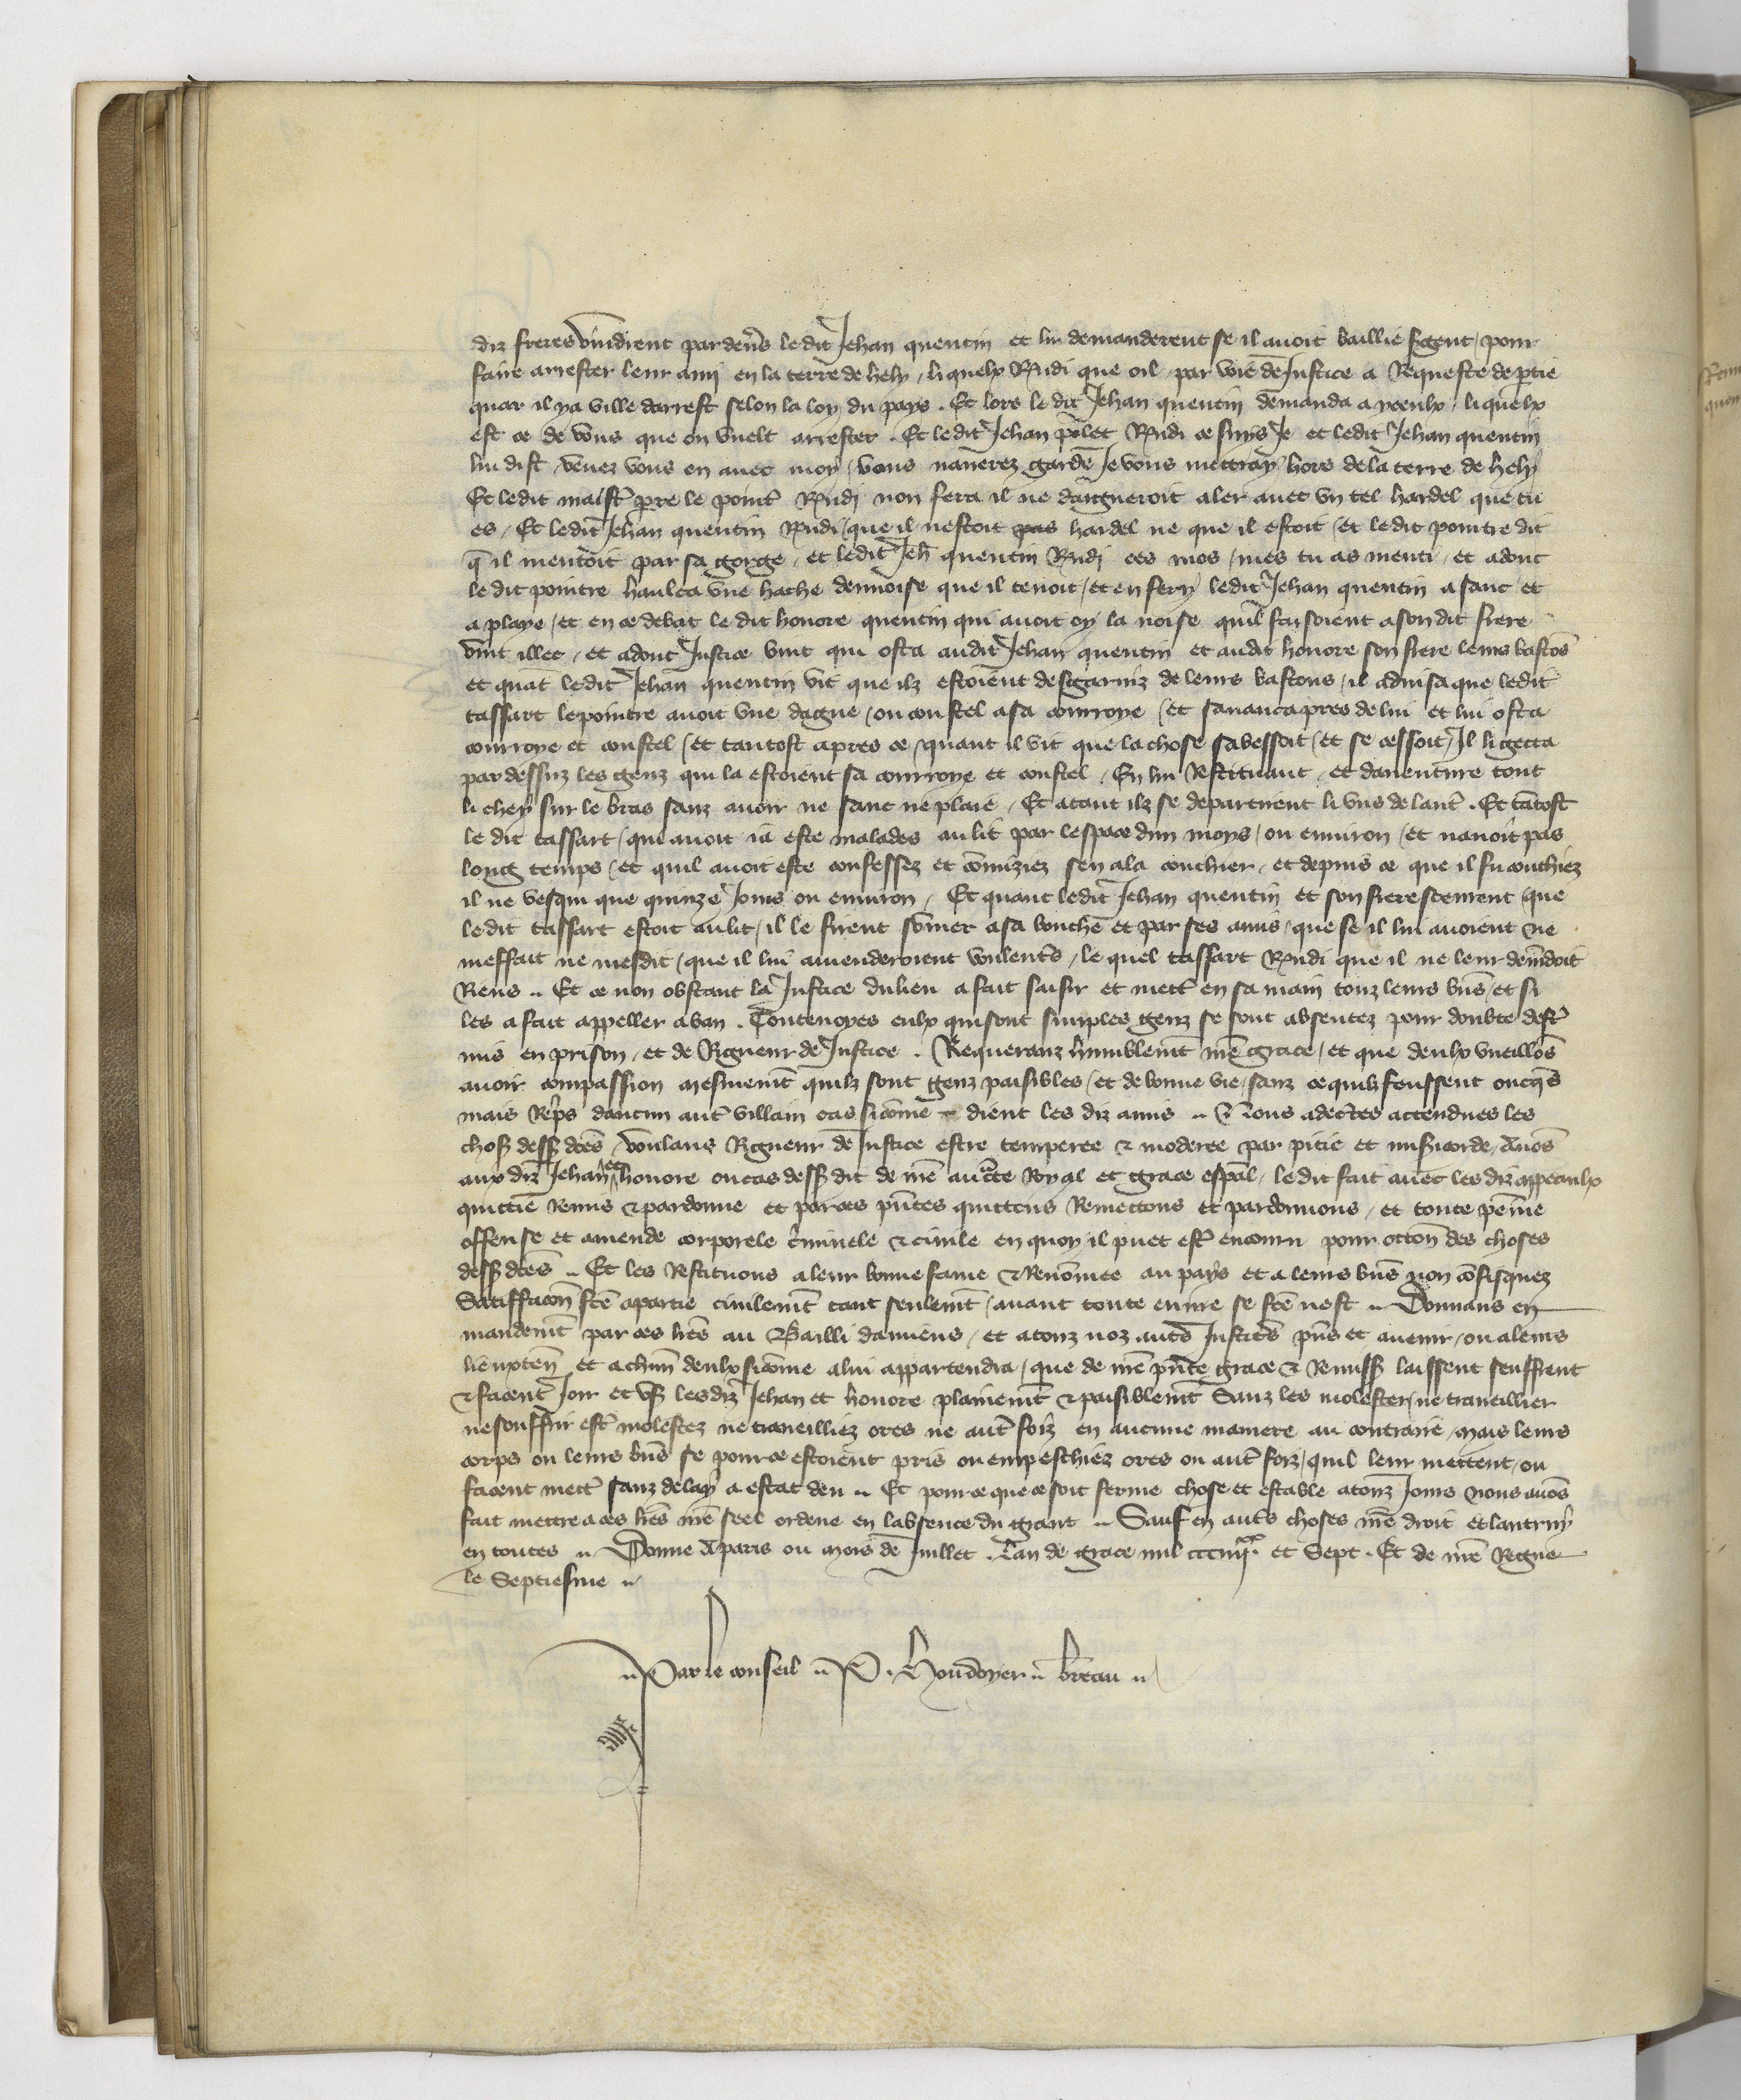 diz freres vindrent par devs ledit Jehan quentin et lui demanderent se il avoit baillie sgent / pour
faire arrester leur ami en la terre de hely / liquelx Rndi que oil par voie de Justice a Requeste de ptie
quar il ya ville darrest selon la loy du pays . Et lors le dit Jehan quentin demanda a yceulx / liquelx
est ce de vous que on vuelt arrester . Et ledit Jehan polet Rndi ce suys Je et ledit Jehan quentin
lui dist / venez vous en avec moy / vous naverez garde Je vous mettray hors de la terre de hely
Et ledit maistr pre le pointr Rndi non fera il ne daigneroit aler avec un tel hardel que tu
es / Et ledit Jehan quentin Rndi / que il nestoit pas hardel ne que il estoit / et le dit pointre dit
q il mentoit par sa gorge / et ledit Jeh quentin Rndi ces mos / mes tu as menti / et adont
le dit pointre haulca une hache dennoise que il tenoit / et en fery ledit Jehan quentin a sanc et
a playe / et en ce debat le dit honore quentin qui avoit oy la noise quil faisoient a son dit frere
vint illec / et adont Justice vint qui osta audit Jehan quentin et audit honore son frere leurs bastos
et quat ledit Jehan quentin vit que ilz estoient desgarniz de leurs bastons / il advisa que ledit
tassart le pointre avoit une dague / ou coustel a sa courroye / et savanca pres de lui et lui osta
courroye et coustel / et tantost apres ce / quant il vit que la chose sabessoit / et se cessoit / Il li getta
par dessuz les genz qui la estoient sa courroye et coustel / En lui Restituant / et daventure tout
li chey sur le bras sanz avoir ne sanc ne plaie / Et atant ilz se departirent li uns de lautr . Et tatost
le dit tassart / qui avoit ia este malades au lit par lespace dun moys / ou environ / et navoit pas
long temps / et quil avoit este confessez et cominiez sen ala couchier / et depuis ce que il fu couchiez
il ne vesqui que quinze Jours ou environ / Et quant ledit Jehan quentin et son frere scevrent que
ledit tassart estoit au lit / il le firent somer a sa bouche et par ses amis / que se il lui avoient ne
meffait ne mesdit / que il lui amenderoient voulents / le quel tassart Rndi que il ne leur demdoit
Riens .. Et ce non obstant la Justice du lieu a fait saisir et mettr en sa main touz leurs bns / et si
les a fait appeller a ban . Toutevoyes eulx qui sont simples genz se sont absentez pour doubte destr
mis en prison / et de Rigueur de Justice . Requeranz humblemt nre grace / et que deulx vueillos
avoir compassion mesmemt quilz sont genz paisibles / et de bonne vie / sanz ce quilz feussent oncqs
mais Rps daucun autr villain cas sicome dient les diz amis .. Nous adectes attendues les
chos dess dces / voulans Rigueur de Justice estre temperee & moderee par pitie et misicorde / Avos
aux diz Jehan et honore ou cas dess dit de nre aucte Royal et grace espal / le dit fait avec les diz appeaulx
quittie Remis & pardonne et par ces pntes quittons Remettons et pardonnons / et toute peine
offense et amende corporele criminele & civile en quoy il puet estr encouru pour occon des choses
dess dces .. Et les Restituons a leur bonne fame & Renomee au pays et a leurs bns non cofisquez
Satiffacon fce apartie civilemt tant seulemt / avant toute euvre se fce nest .. Donnans en
mandemt par ces lres au Bailli damiens / et a touz noz autrs Justices pns et avenir / ou a leurs
lieuxten et a chun deulx sicome a lui appartendra / que de nre pnte grace & Remiss laissent seuffrent
& facent Joir et us les diz Jehan et honore plainemt & paisiblemt Sanz les molester / ne traveillier
ne souffrir estr molestez ne traveilliez ores ne autr foiz en aucune maniere au contraire / mais leurs
corps ou leurs bns se pour ce estoient pris ou empeschiez ores ou autr foiz / quil leur mettent / ou
facent mettr sanz delay a estat deu .. Et pour ce que ce soit ferme chose et estable a touz Jours nous avos
fait mettre a ces lres nre seel ordene en labsence du grant .. Sauf en autrs choses nre droit et lautruy
en toutes .. Donne A paris ou mois de Juillet . Lan de grace mil ccciiiixx et Sept . Et de nre Regne
le Septiesme ..
.. Par le conseil .. P . Houdoyer .. breau ..